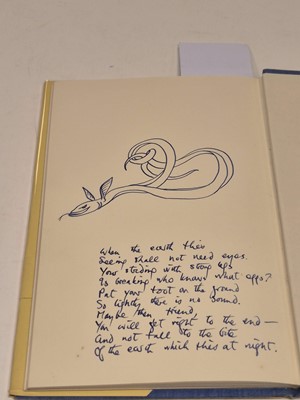 When the earth
Seeing shall not need eyes.
Your striding with strong legs
Is breaking who knows what eggs?
Put your foot on the ground
So lightly there is no sound.
Maybe then, friend,
You will get right to the end—
And not fall to the bite
Of the earth which at night.